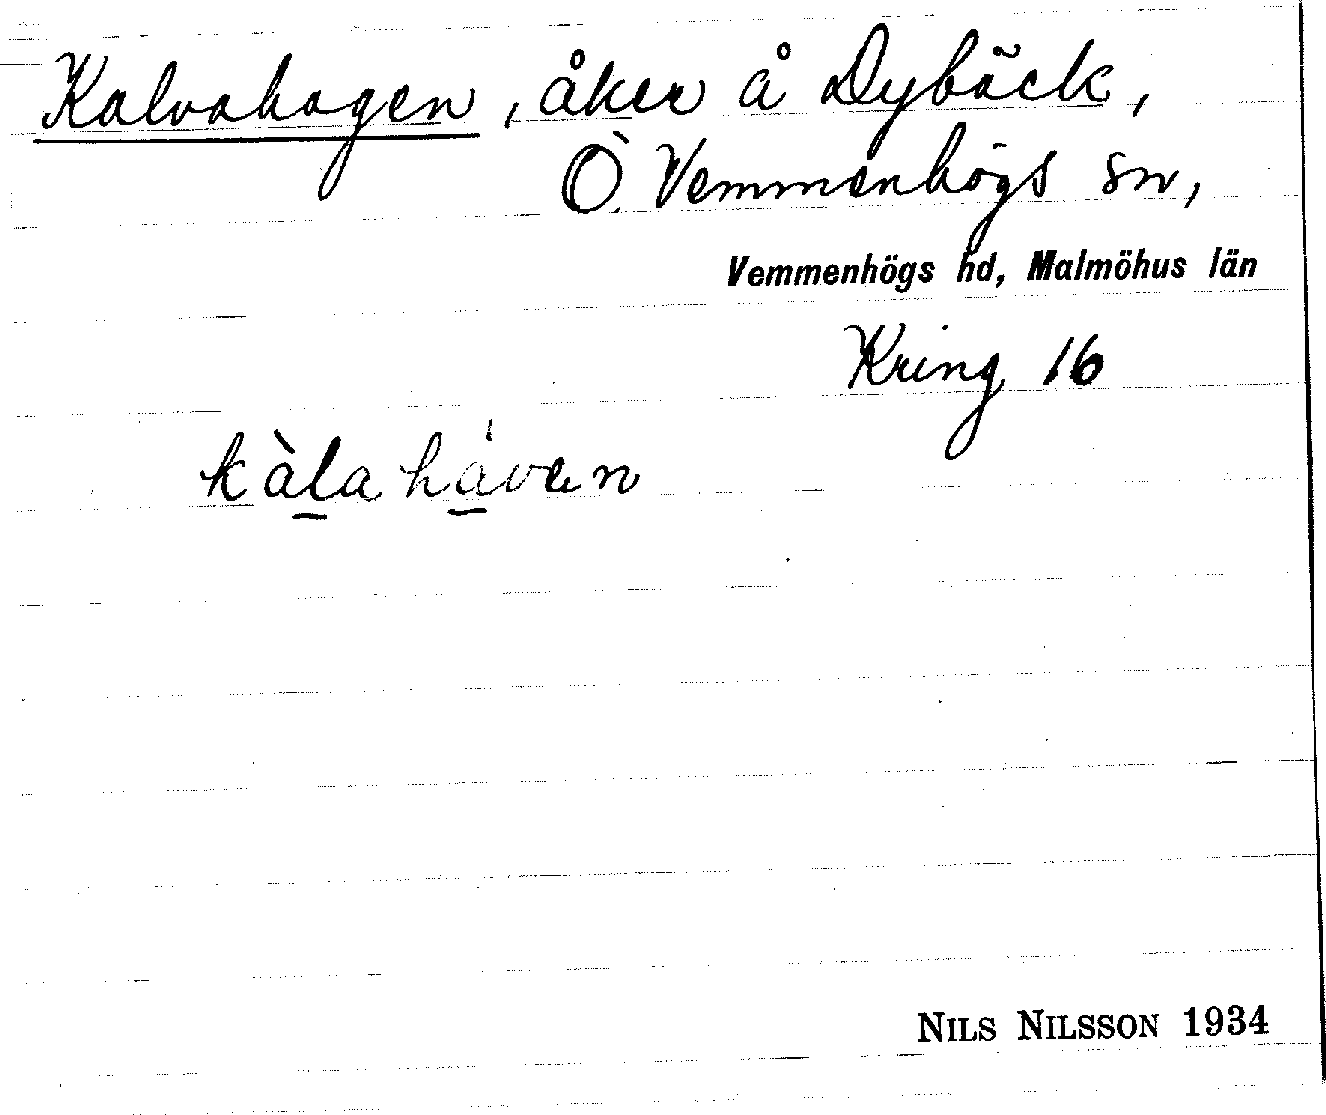 Kalvahagen, åker å Dybäck,
Ö Vemmenhögs sn,
Vemmenhögs hd, Malmöhus län
Kring 16
kàlahávan
NILS NILSSON 1934